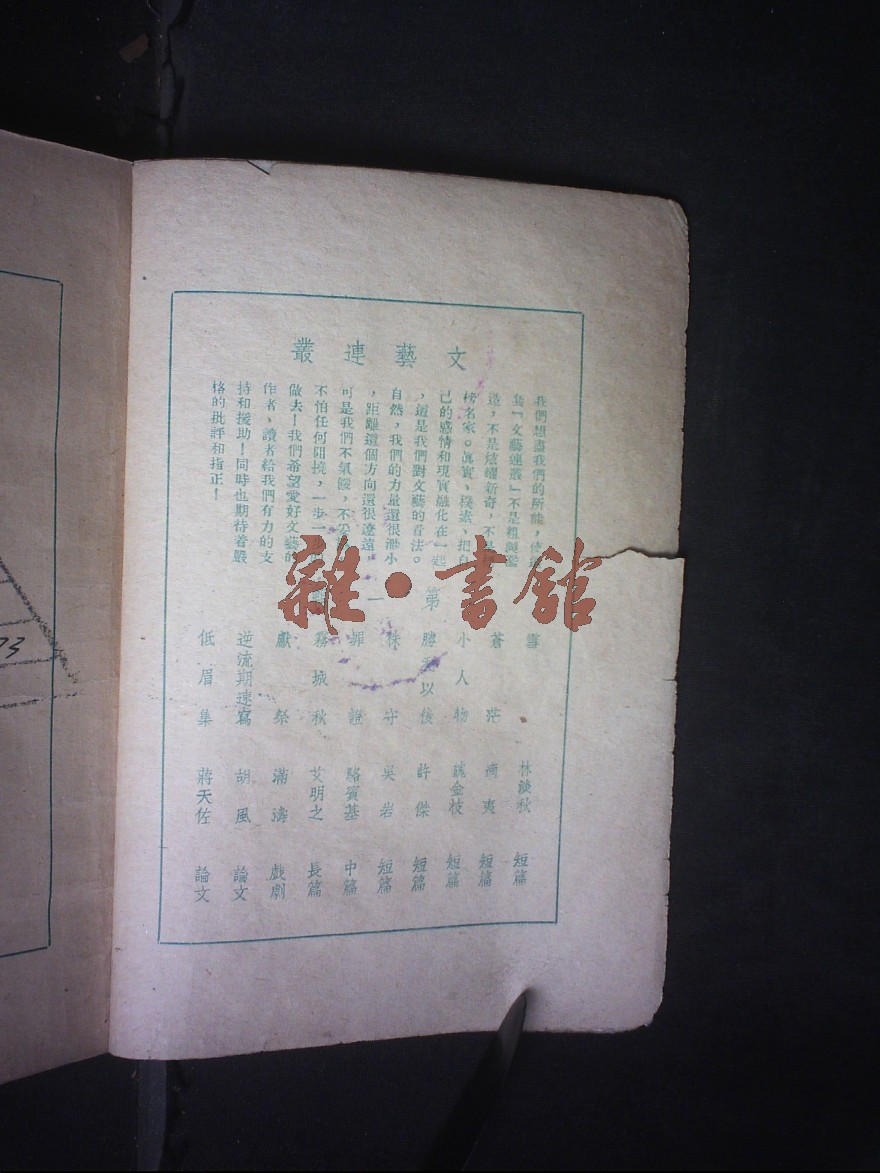 文藝連叢
我們想盡我們的所能,
集『文藝連叢』不是粗製濫
造,不是炫耀新奇,不是
榜名家。眞實、樸素、把自
己的感情和現實融化在一起
,這是我們對文藝的看法。
自然,我們的力量還很渺小
,距離這個方向還很遼遠,
可是我們不氣餒,不
不怕任何阻撓,一步一步的
做去!我們希望愛好文藝的
作者、讀者給我們有力的支
持和援助!同時也期待着嚴
格的批評和指正!
第一
雪 林淡秋 短篇
蒼茫 滿夷 短篇
小人物 魏金枝 短篇
勝利以後 許傑 短篇
株守 吳岩 短篇
罪證 駱賓基 中篇
霧城秋 艾明之 長篇
獻祭 滿濤 戲劇
逆流期速寫 胡風 論文
低眉集 蔣天佐 論文
雜·書館
73